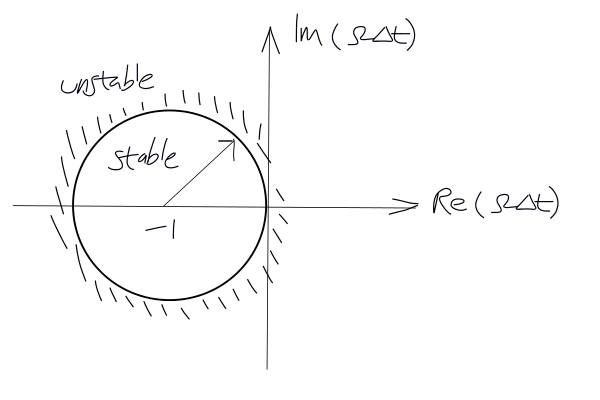 Im(ΩΔt)
unstable
stable
Re(ΩΔt)
-1